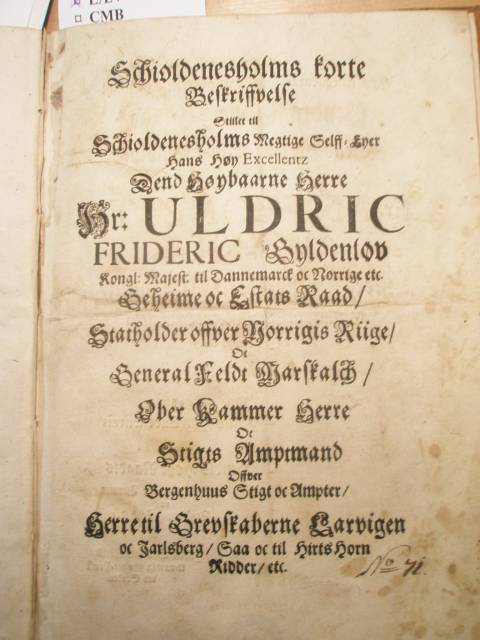 CMB
Schioldenesholms korte
Beskriffvelse
Stillet til
Schioldenesholms Megtige Selff-Eyer
Hans Høy Excellentz
Dend Høybaarne Herre
Hr: ULDRIC
FRIDERIC Gyldenløv
Kongl: Majest: til Dannemarck oc Norrige etc.
Geheime oc Estats Raad/
Statholder offver Norrigis Riige/
Oc
General Feldt Marskalch/
Ober Kammer Herre
Oc
Stigts Amptmand
Offver
Bergenhuus Stigt oc Ampter/
Herre til Grevskaberne Larvigen
oc Jarlsberg/ Saa oc til Hirts Horn
Ridder/ etc.
No 71.